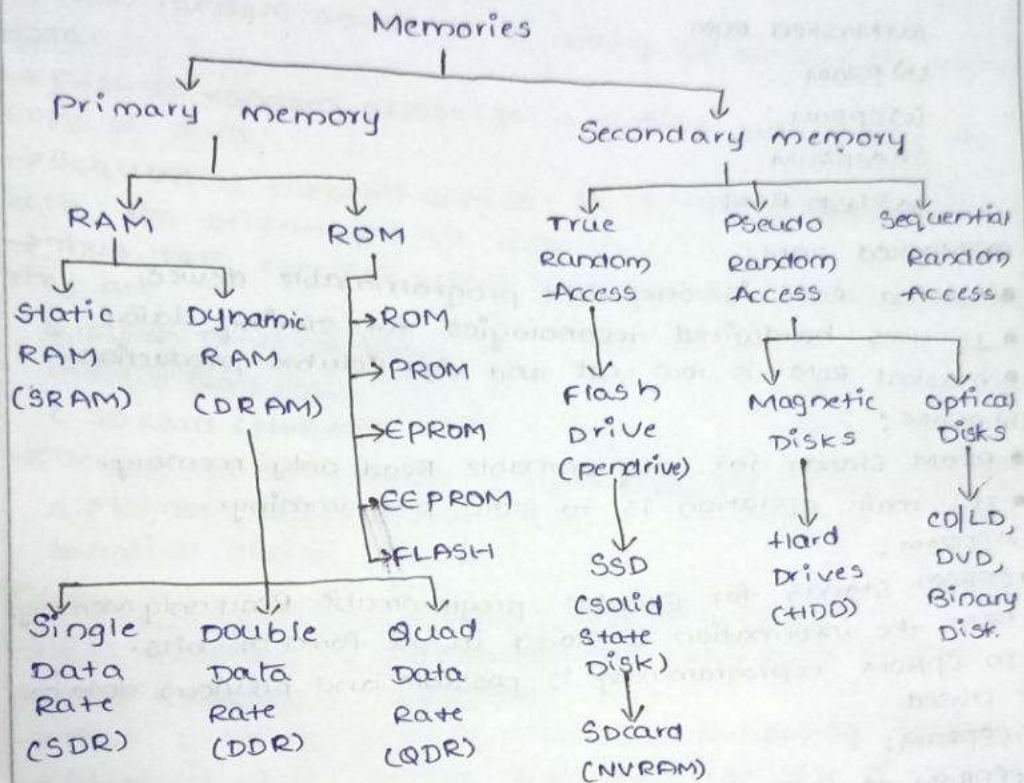 Memories
Primary memory
Secondary memory
RAM
ROM
True
Random
-Access
Pseudo
Random
Access
Sequential
Random
-Access
Static
RAM
(SRAM)
Dynamic
RAM
(DRAM)
ROM
PROM
EPROM
EEPROM
FLASH
Flash
Drive
(pendrive)
SSD
(Solid
State
Disk)
SDcard
(NVRAM)
Magnetic
Disks
Hard
Drives
(HDD)
Optical
Disks
CD/LD,
DVD,
Binary
Disk.
Single
Data
Rate
(SDR)
Double
Data
Rate
(DDR)
Quad
Data
Rate
(QDR)